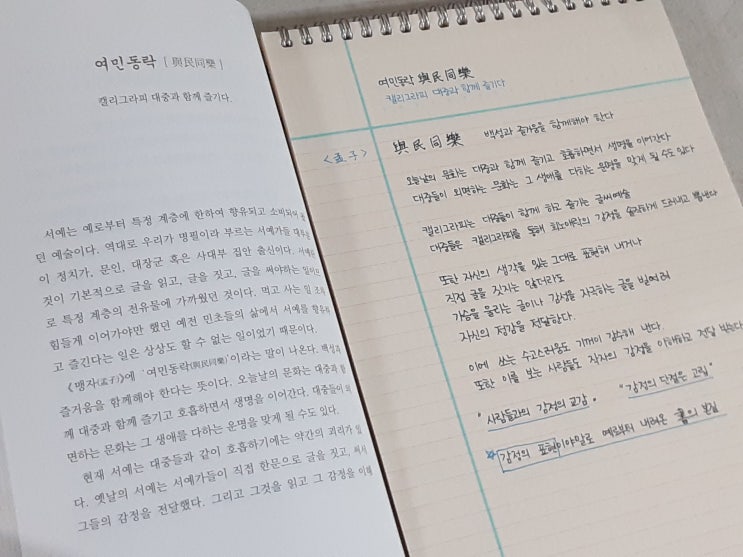 여민동락 [與民同樂]
캘리그라피 대중과 함께 즐기다.
서예는 예로부터 특정 계층에 한하여 향유되고 소비되어
던 예술이다. 역대로 우리가 명필이라 부르는 서예가들
이 정치가, 문인, 대장군 혹은 사대부 집안 출신이다.
것이 기본적으로 글을 읽고, 글을 짓고, 글을 써야하는
로 특정 계층의 전유물에 가까웠던 것이다. 먹고 사는 일
힘들게 이어가야만 했던 예전 민초들의 삶에서 서예를
고 즐긴다는 일은 상상도 할 수 없는 일이었기 때문이다.
《맹자(孟子)》에 '여민동락(與民同樂)'이라는 말이 나온다. 백성과
즐거움을 함께해야 한다는 뜻이다. 오늘날의 문화는 대중과 함
께 대중과 함께 즐기고 호흡하면서 생명을 이어간다. 대중들이 외
면하는 문화는 그 생애를 다하는 운명을 맞게 될 수도 있다.
현재 서예는 대중들과 같이 호흡하기에는 약간의 괴리가 있
다. 옛날의 서예는 서예가들이 직접 한문으로 글을 짓고, 써서
그들의 감정을 전달했다. 그리고 그것을 읽고 그 감정을 이해
여민동락 與民同樂
캘리그라피 대중과 함께 즐기다
<孟子> 與民同樂 백성과 즐거움을 함께해야 한다
오늘날의 문화는 대중과 함께 즐기고 호흡하면서 생명을 이어간다
대중들이 외면하는 문화는 그 생애를 다하는 운명을 맞게 될 수도 있다
캘리그라피는 대중들이 함께 하고 즐기는 글씨예술
대중들은 캘리그라피를 통해 희노애락의 감정을 솔직하게 드러내고 뽐낸다
또한 자신의 생각을 있는 그대로 표현해 내거나
직접 글을 짓지는 않더라도
가슴을 울리는 글이나 감성을 자극하는 글을 빌려
자신의 정감을 전달한다.
이에 쓰는 수고스러움도 기꺼이 감수해 낸다.
또한 이를 보는 사람들도 작자의 감정을 이해하고 전달 받는다
"사람들과의 감정의 교감" "감정의 단절은 고립"
☆ 감정의 표현이야말로 예로부터 내려온 글의 본질